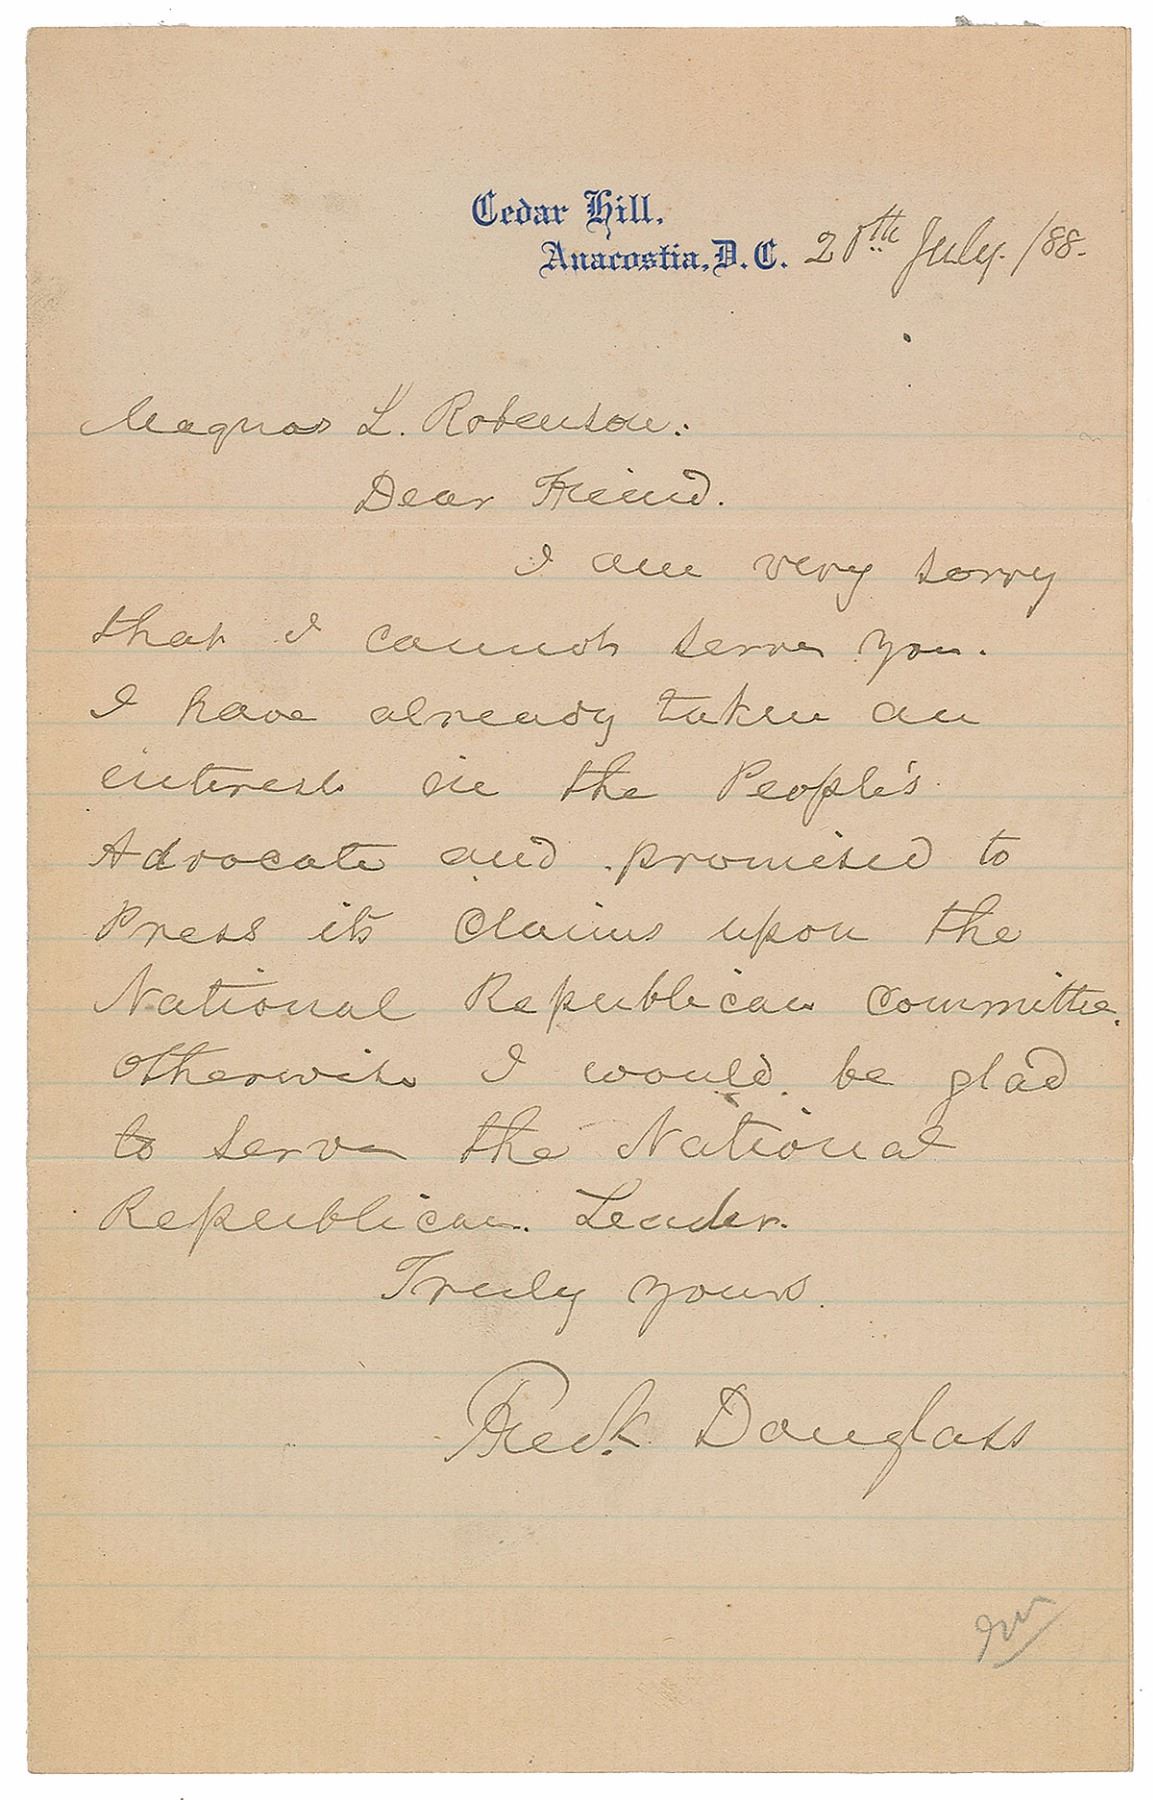 Cedar Hill.
Anacostia, D.C. 20th July. /88.
Magnus L. Robinson:
Dear Friend.
I am very sorry
that I cannot serve you.
I have already taken an
interest in the People's
Advocate and promised to
Press its Claims upon the
National Republican Committee.
Otherwise I would be glad
to serve the National
Republican Leader.
Truly yours.
Fredk Douglass